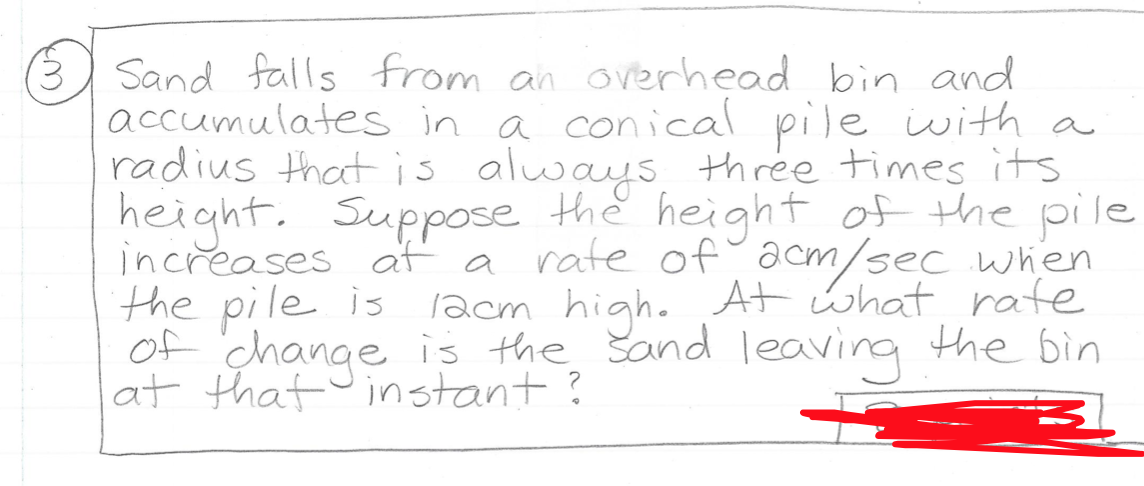 3
Sand falls from an overhead bin and
accumulates in a conical pile with a
radius that is always three times its
height. Suppose the height of the pile
increases at a rate of 2cm/sec when
the pile is 12cm high. At what rate
of change is the sand leaving the bin
at that instant?